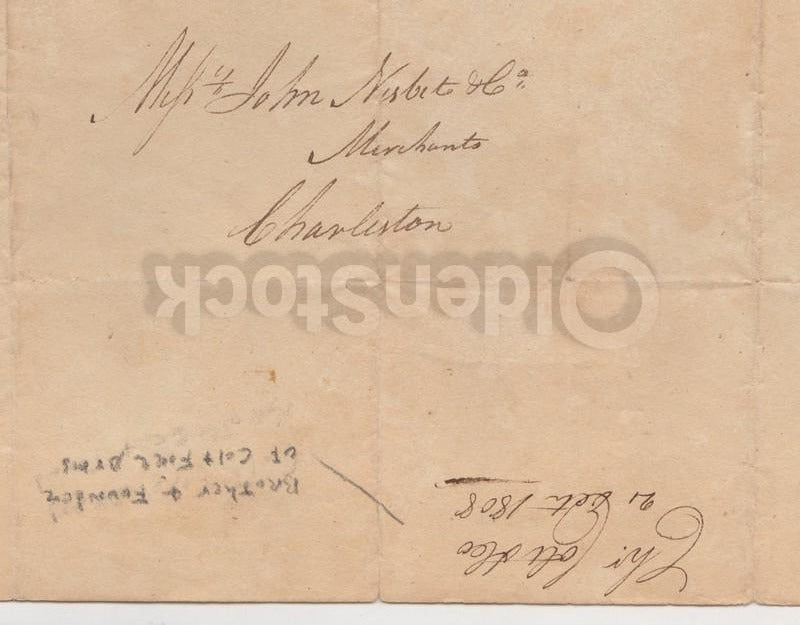 Messrs John Nisbet & Co.
Merchants
Charleston
OldenStock
Colt & Co
2, 1808
BROTHER & FOUNDER
OF COLT FIRE ARMS